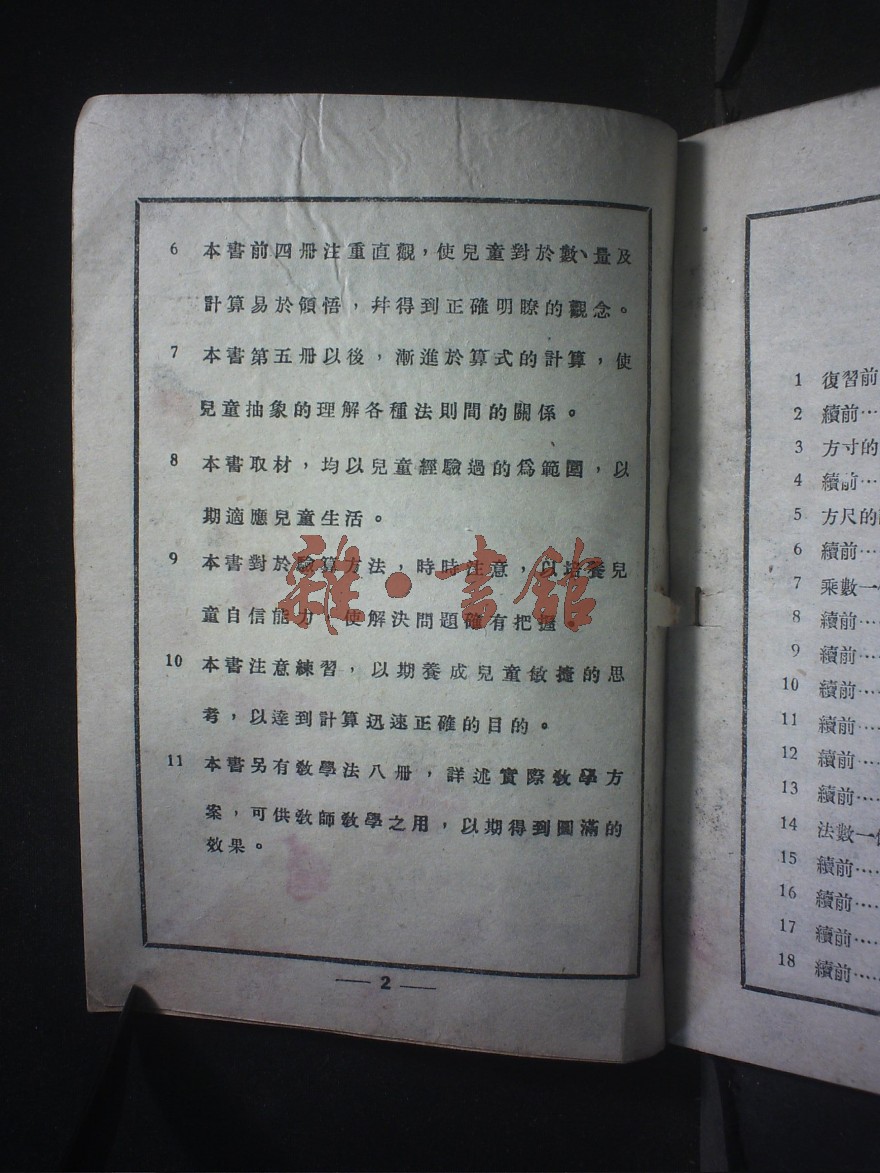 6 本書前四冊注重直觀,使兒童對於數、量及
計算易於領悟,幷得到正確明瞭的觀念。
7 本書第五冊以後,漸進於算式的計算,使
兒童抽象的理解各種法則間的關係。
8 本書取材,均以兒童經驗過的爲範圍,以
期適應兒童生活。
9 本書對於驗算方法,時時注意,以培養兒
童自信能力,使解決問題確有把握。
10 本書注意練習,以期養成兒童敏捷的思
考,以達到計算迅速正確的目的。
11 本書另有敎學法八冊,詳述實際敎學方
案,可供敎師敎學之用,以期得到圓滿的
效果。
— 2 —
雜·書館
1 復習前
2 續前…
3 方寸的
4 續前…
5 方尺的
6 續前…
7 乘數一
8 續前…
9 續前…
10 續前…
11 續前…
12 續前…
13 續前…
14 法數一
15 續前…
16 續前…
17 續前…
18 續前…